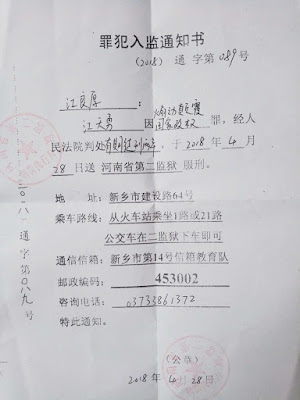 罪犯入监通知书
(2018) 通 字第089号
江良厚:
江天勇 因煽动颠覆国家政权罪,经人
民法院判处有期徒刑两年,于2018年4月
28日送 河南省第二监狱 服刑。
地 址: 新乡市建设路64号
乘车路线: 从火车站乘坐1路或21路
公交车在二监狱下车即可
通信信箱: 新乡市第14号信箱教育队
邮政编码: 453002
咨询电话: 03733861372
特此通知。
(公章)
2018年4月28日
二〇一八通字第〇八九号